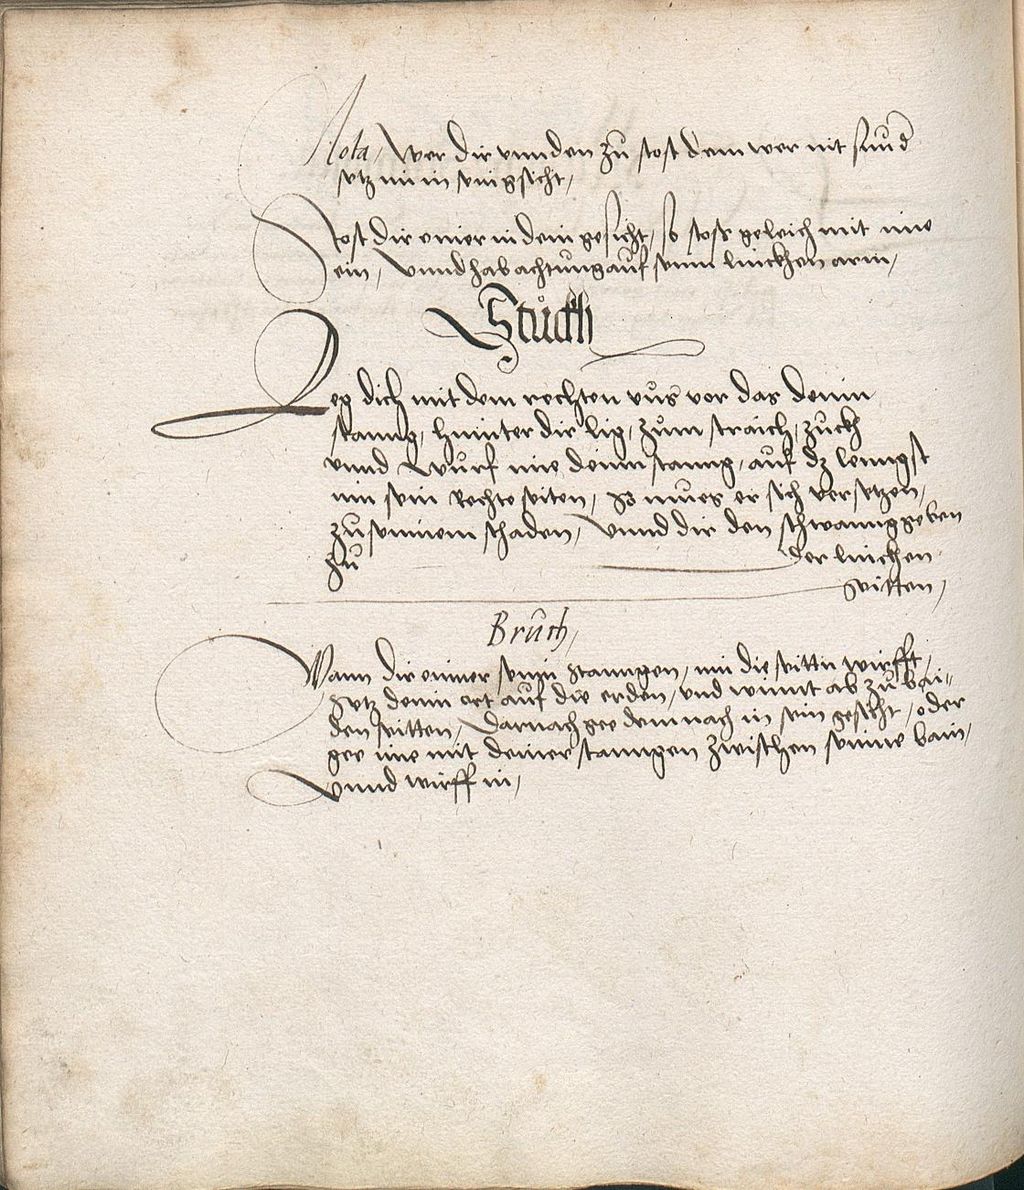 Nota, Wer dir unnden zu stost dem wer nit sunnd
setz im in sein gsicht,
Stost dir einer in dein gesicht, so stoss geleich mit ime
ein, Unnd hab achtung auf seinn linckhen arm,
Stuckh
Leg dich mit dem rechten fus vor das deinn
stanng, hinnter dir lig, zum straich, zuckh
unnd Wurf ime deinn stanng, auf dz lenngst
inn sein Rechte seiten, So mues er sich versetzen,
zu seinnem schaden, Unnd dir den schwanng geben
zu der lincken
seitten,
Bruch,
Wann dir einner seinn stanngen, inn die seittn wirfft,
Setz deinn ort auf die erden, und winnt ab zu bai=
den seitten, Darnach gee demnach in sein gesicht, oder
gee ime mit deiner stanngen zwischen seinne bain,
Unnd wirff in,